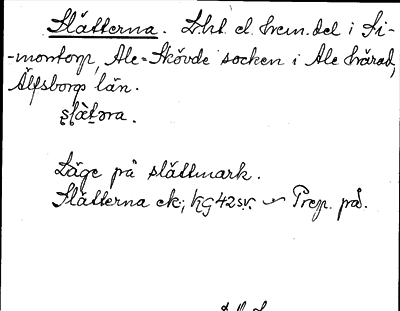 Slätterna. Lht el. hem.del i Si-
-montorp, Ale-Skövde socken i Ale härad,
Älfsborgs län.
s̨l̨àt̨əra.
Läge på slättmark.
Slätterna ek; kG42sv. ~ Prep. på.